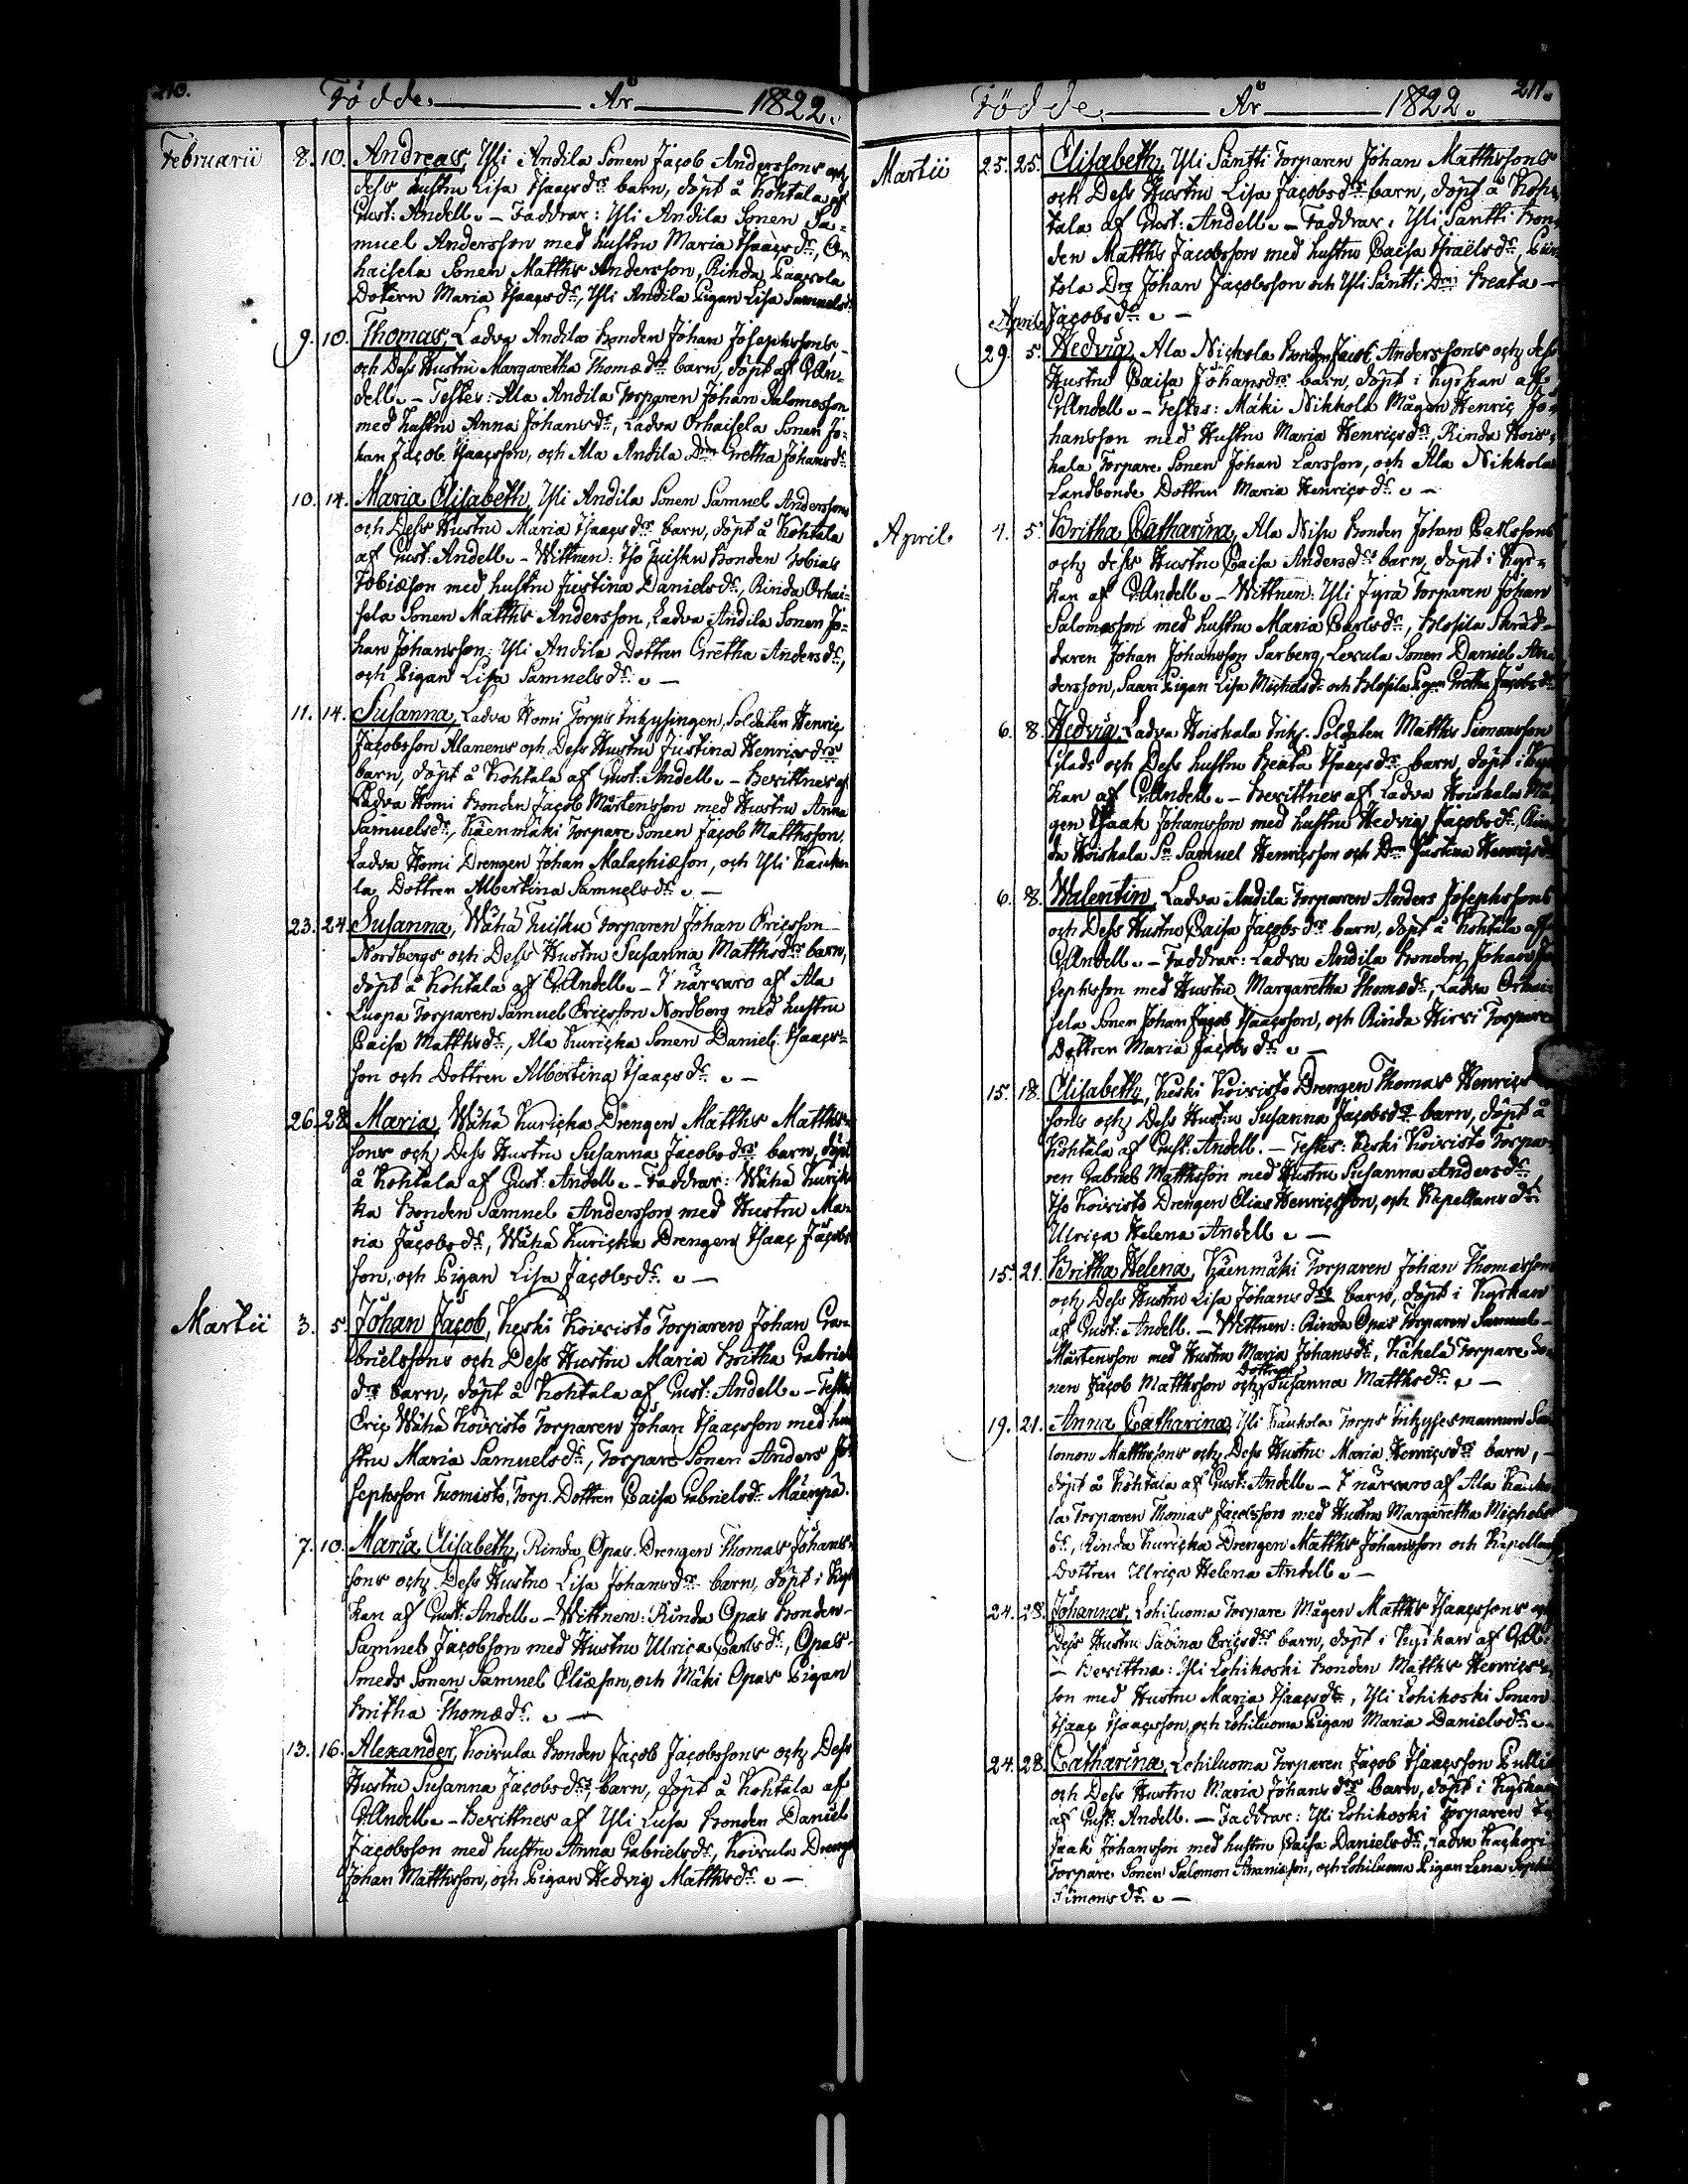 210.
Födde. År 1822.
Februarii 8. 10. Andreas, Yli Andila Sonen Jacob Anderssons och
dess hustru Lisa Isaacsdrs barn, döpt å Kohtala af
Gust: Andell. – Faddrar: Yli Andila Sonen Sa-
muel Andersson med hustru Maria Isaacsdr, Or-
haisela Sonen Matths Andersson, Rinda Paavola
Dotern Maria Isaacsdr, Yli Andila Pigan Lisa Samuelsdr
9. 10. Thomas, Ladva Andila Bonden Johan Josephssons
och Dess Hustru Margaretha Thomædrs barn, döpt af G. An-
dell. – Testes: Ala Andila Torparen Johan Salomosson
med hustru Anna Johansdr, Ladva Orhaisela Sonen Jo-
han Jacob Isaacsson, och Ala Andila Dtrn Gretha Johansdr.
10. 14. Maria Elisabeth, Yli Andila Sonen Samuel Anderssons
och Dess Hustru Maria Isaacsdrs barn, döpt å Kohtala
af Gust: Andell. – Wittnen: Iso Tuisku Bonden Tobias
Tobiæson med hustru Justina Danielsdr, Rinda Orhai-
sela Sonen Matths Andersson, Ladva Andila Sonen Jo-
han Johansson, Yli Andila Dottren Gretha Andersdr,
och Pigan Lisa Samuelsdr. –
11. 14. Susanna, Ladva Homi Torps Inhysingen, Soldaten Henric
Jacobsson Alanens och Dess Hustru Justina Henricsdrs
barn, döpt å Kohtala af Gust: Andell. – Bevittnes af
Ladva Homi Bonden Jacob Mårtensson med Hustru Anna
Samuelsdr, Käenmäki Torpare Sonen Jacob Matthsson,
Ladva Homi Drengen Johan Malachiæson, och Yli Kauko-
la Dottren Albertina Samuelsdr. –
23. 24. Susanna, Wähä Tuisku Torparen Johan Ericsson
Nordbergs och Dess Hustru Susanna Matthsdrs barn,
döpt å Kohtala af G. Andell. – I närvaro af Ala
Luopa Torparen Samuel Ericsson Nordberg med hustru
Caisa Matthsdr, Ala Kuricka Sonen Daniel Isaacs-
son och Dottren Albertina Isaacsdr. –
26. 28. Maria, Wähä Kuricka Drengen Matths Matths-
sons och Dess Hustru Susanna Jacobsdrs barn, döpt
å Kohtala af Gust: Andell. – Faddrar: Wähä Kuric-
ka Bonden Samuel Andersson med Hustru Ma-
ria Jacobsdr, Wähä Kuricka Drengen Isaac Jacobs-
son, och Pigan Lisa Jacobsdr. –
Martii 3. 5. Johan Jacob, Keski Koivisto Torparen Johan Ga-
brielssons och Dess Hustru Maria Britha Gabriels
drs barn, döpt å Kohtala af Gust: Andell. – Testes
Eric Wähä Koivisto Torparen Johan Isaacsson med hu-
stru Maria Samuelsdr, Torpare Sonen Anders Jo-
sephsson Tuomisto, Torp. Dottren Caisa Gabrielsdr Mäenpä.
7. 10. Maria Elisabeth, Rinda Opas Drengen Thomas Johans-
sons och Dess Hustru Lisa Johansdrs barn, döpt i Kyr-
kan af Gust: Andell. – Wittnen: Rinda Opas Bonden
Samuel Jacobsson med Hustru Ulrica Carlsdr, Opas
Smeds Sonen Samuel Eliæson, och Mäki Opas Pigan
Britha Thomædr. –
13. 16. Alexander, Koivula Bonden Jacob Jacobssons och Dess
Hustru Susanna Jacobsdrs barn, döpt å Kohtala af
G. Andell. – Bevittnes af Yli Luja Bonden Daniel
Jacobsson med hustru Anna Gabrielsdr, Koivula Drengen
Johan Matthsson, och Pigan Hedvig Matthsdr. –
211.
Födde. År 1822.
Martii 25. 25. Elisabeth, Yli Säntti Torparen Johan Matthssons
och Dess Hustru Lisa Jacobsdrs barn, döpt å Koh-
tala af Gust: Andell. – Faddrar: Yli Säntti Bon-
den Matths Jacobsson med hustru Caisa Israelsdr,
tola Drg Johan Jacobsson och Yli Säntti Dtrn Beata
Jacobsdr. –
April.
29. 5. Hedvig, Ala Nickola Bonden Jacob Anderssons och dess
Hustru Caisa Johansdrs barn, döpt i Kyrkan af
G. Andell. – Testes: Mäki Nikkola Mågen Henric Jo-
hansson med Hustru Maria Henricsdr, Rinda Hois-
kala Torpare Sonen Johan Larsson, och Ala Nikkola
Landbonde Dottren Maria Henricsdr. –
April. 4. 5. Britha Catharina, Ala Nisu Bonden Johan Carlssons
och dess Hustru Caisa Andersdrs barn, döpt i Kyr-
kan af G. Andell. – Wittnen: Yli Jyrä Torparen Johan
Salomosson med hustru Maria Carlsdr, Plosila Skräd-
daren Johan Johansson Sarberg, Lexula Sonen Daniel An-
dersson, Saari Pigan Lisa Michelsdr och Plosila Pgn Gretha Jacobsdr
6. 8. Hedvig, Ladva Hoiskala Inh. Soldaten Matths Simonsson
Glads och Dess hustru Beata Isaacsdrs barn, döpt i Kyr-
kan af G. Andell. – Bevittnes af Ladva Hoiskala Må-
gen Isaak Johansson med hustru Hedvig Jacobsdr, Rin-
da Hoiskala Sn Samuel Henricsson och Dtrn Justina Henricsdr
6. 8. Walentin, Ladva Andila Torparen Anders Josephssons
och Dess Hustru Caisa Jacobsdrs barn, döpt å Kohtala af
G. Andell. – Faddrar: Ladva Andila Bonden Johan Jo-
sephsson med Hustru Margaretha Thomædr, Ladva Orhai-
sela Sonen Johan Jacob Isaacsson, och Rinda Hirvi Torpare
Dottren Maria Jacobsdr. –
15. 18. Elisabeth, Keski Koivisto Drengen Thomas Henrics-
sons och Dess Hustru Susanna Jacobsdrs barn, döpt å
Kohtala af Gust: Andell. – Testes: Keski Koivisto Torpa-
ren Gabriel Matthsson med Hustru Susanna Andersdr,
Iso Koivisto Drengen Elias Henricsson, och Kapellans dr.
Ulrica Helena Andell. –
15. 21. Britha Helena, Käenmäki Torparen Johan Thomæssons
och Dess Hustru Lisa Johansdrs barn, döpt i Kyrkan
af Gust: Andell. – Wittnen: Rinda Opas Torparen Samuel
Mårtensson med Hustru Maria Johansdr, Kähelä Torpare So-
nen Jacob Matthsson och Dottren Susanna Matthsdr. –
19. 21. Anna Catharina, Yli Kaukola Torps Inhysesmannen Sa-
lomon Matthssons och Dess Hustru Maria Henricsdrs barn,
döpt å Kohtala af Gust: Andell. – I närvaro af Ala Kauko-
la Torparen Thomas Jacobsson med Hustru Margaretha Michels
dr, Rinda Kuricka Drengen Matths Johansson och Kapellans
Dottren Ulrica Helena Andell. –
24. 28. Johannes, Lohiluoma Torpare Mågen Matths Isaacssons och
Dess Hustru Sabina Ericsdrs barn, döpt i Kyrkan af G. All.
– Bevittna: Yli Lohikoski Bonden Matths Henrics-
son med Hustru Maria Isaacsdr, Yli Lohikoski Sonen
Isaac Isaacsson, och Lohiluoma Pigan Maria Danielsdr. –
24. 28. Catharina, Lohiluoma Torparen Jacob Isaacsson
och Dess Hustru Maria Johansdrs barn, döpt i Kyrkan
af Gust: Andell. – Faddrar: Yli Lohikoski Torparen I-
saak Johansson med hustru Caisa Danielsdr, Ladva Kackori
Torpare Sonen Salomon Ananiæson, och Lohiluoma Pigan Lena Sophia
Simonsdr. –